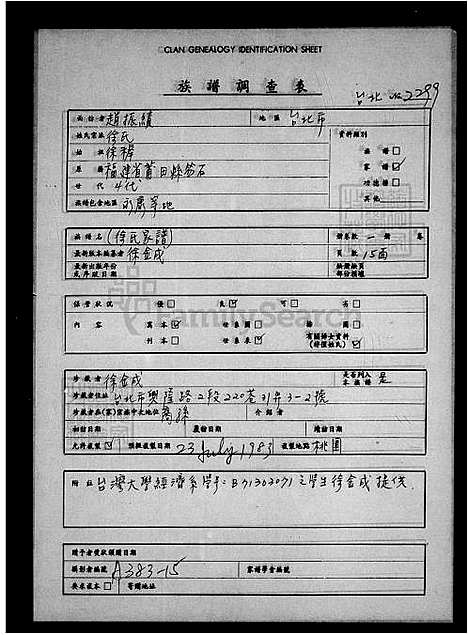 CLAN GENEALOGY IDENTIFICATION SHEET
族譜調查表
台北 No 2299
面訪者 趙振績 地區 台北市
姓氏宗派 徐氏 資料類別
始祖 徐 族譜
原籍 福建省莆田縣 石 家譜
世代 4代 功德譜
族譜包含地區 等地 其他
族譜名 (徐氏家譜) 冊卷數 一 冊 卷
最新版本編纂者 徐金成 頁數 15面
最新出版年份
或年版日期
保管狀況 優 良 可 劣
內容 寫本 世系圖 繪圖
刊本 世系表 有關婦女資料
(特徵姓氏)
FamilySearch
珍藏者 徐金成 是否列入 是
本族譜
珍藏者住址 台北市興隆路2段220巷31弄3-2號
珍藏者在(家)宗族中之地位 裔孫 介紹者
初訪日期 覆訪日期 續訪日期
允許複製 預期複製日期 23 July 1983 複製地點 桃園
附註 台灣大學經濟系學 B71303071 之學生徐金成提供.
贈予者價款領贈日期
攝影者編號 A383-15 家譜學會編號
要求複本 寄贈地址